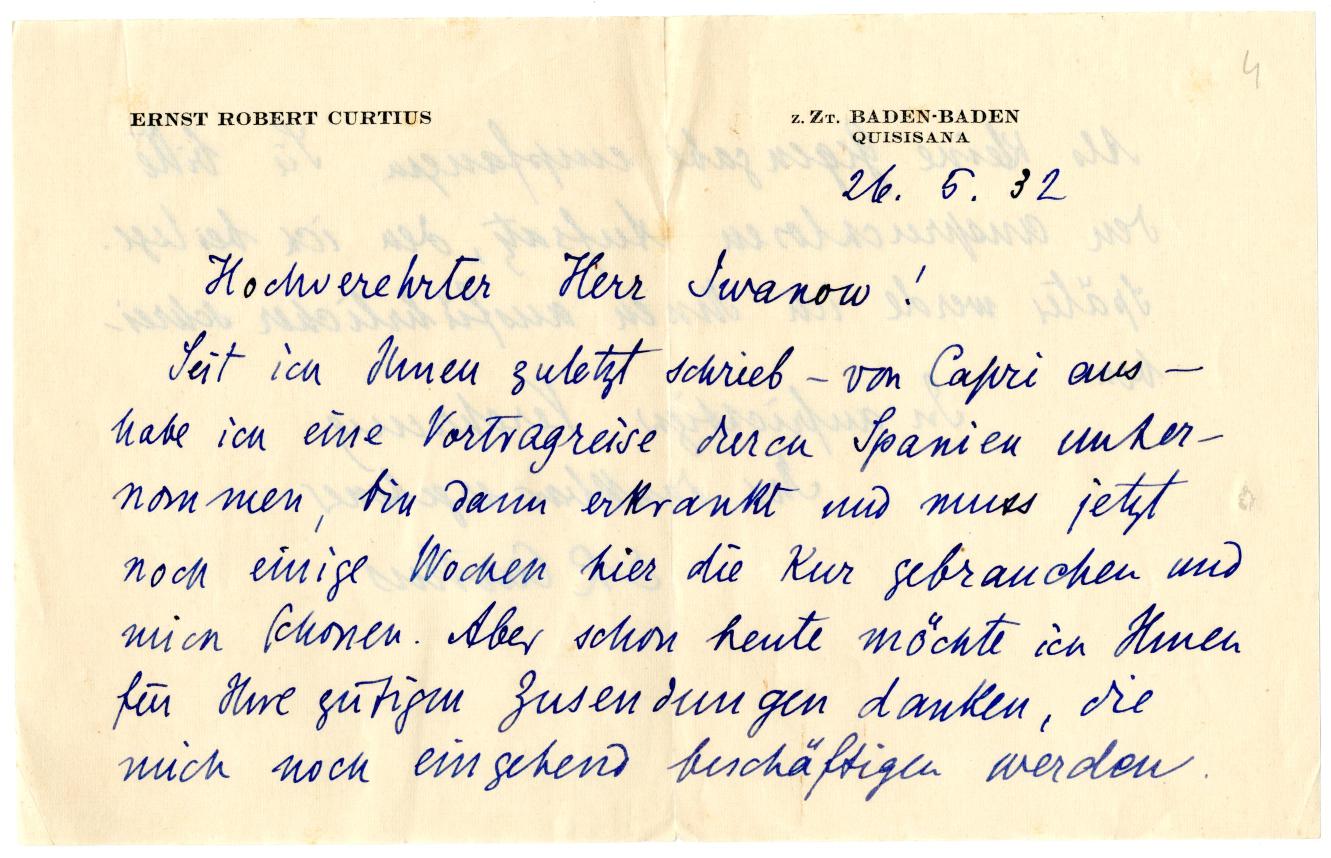 4
ERNST ROBERT CURTIUS
z. Zt. BADEN-BADEN
QUISISANA
26. 5. 32
Hochverehrter Herr Iwanow!
Seit ich Ihnen zuletzt schrieb – von Capri aus –
habe ich eine Vortragreise durch Spanien unter-
nommen, bin dann erkrankt und muss jetzt
noch einige Wochen hier die Kur gebrauchen und
mich schonen. Aber schon heute möchte ich Ihnen
für Ihre gütigen Zusendungen danken, die
mich noch eingehend beschäftigen werden.